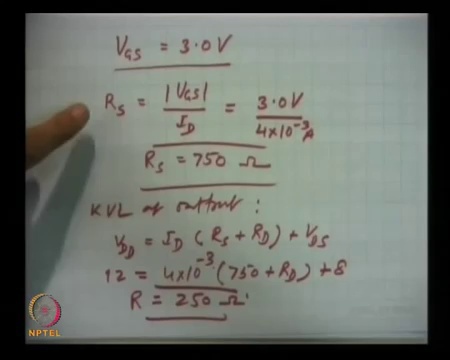 V_GS = 3.0 V
R_S = |V_GS| / I_D = 3.0 V / 4×10^-3 A
R_S = 750 Ω
KVL at output :
V_DD = I_D ( R_S + R_D ) + V_DS
12 = 4×10^-3 (750 + R_D ) + 8
R = 250 Ω
NPTEL